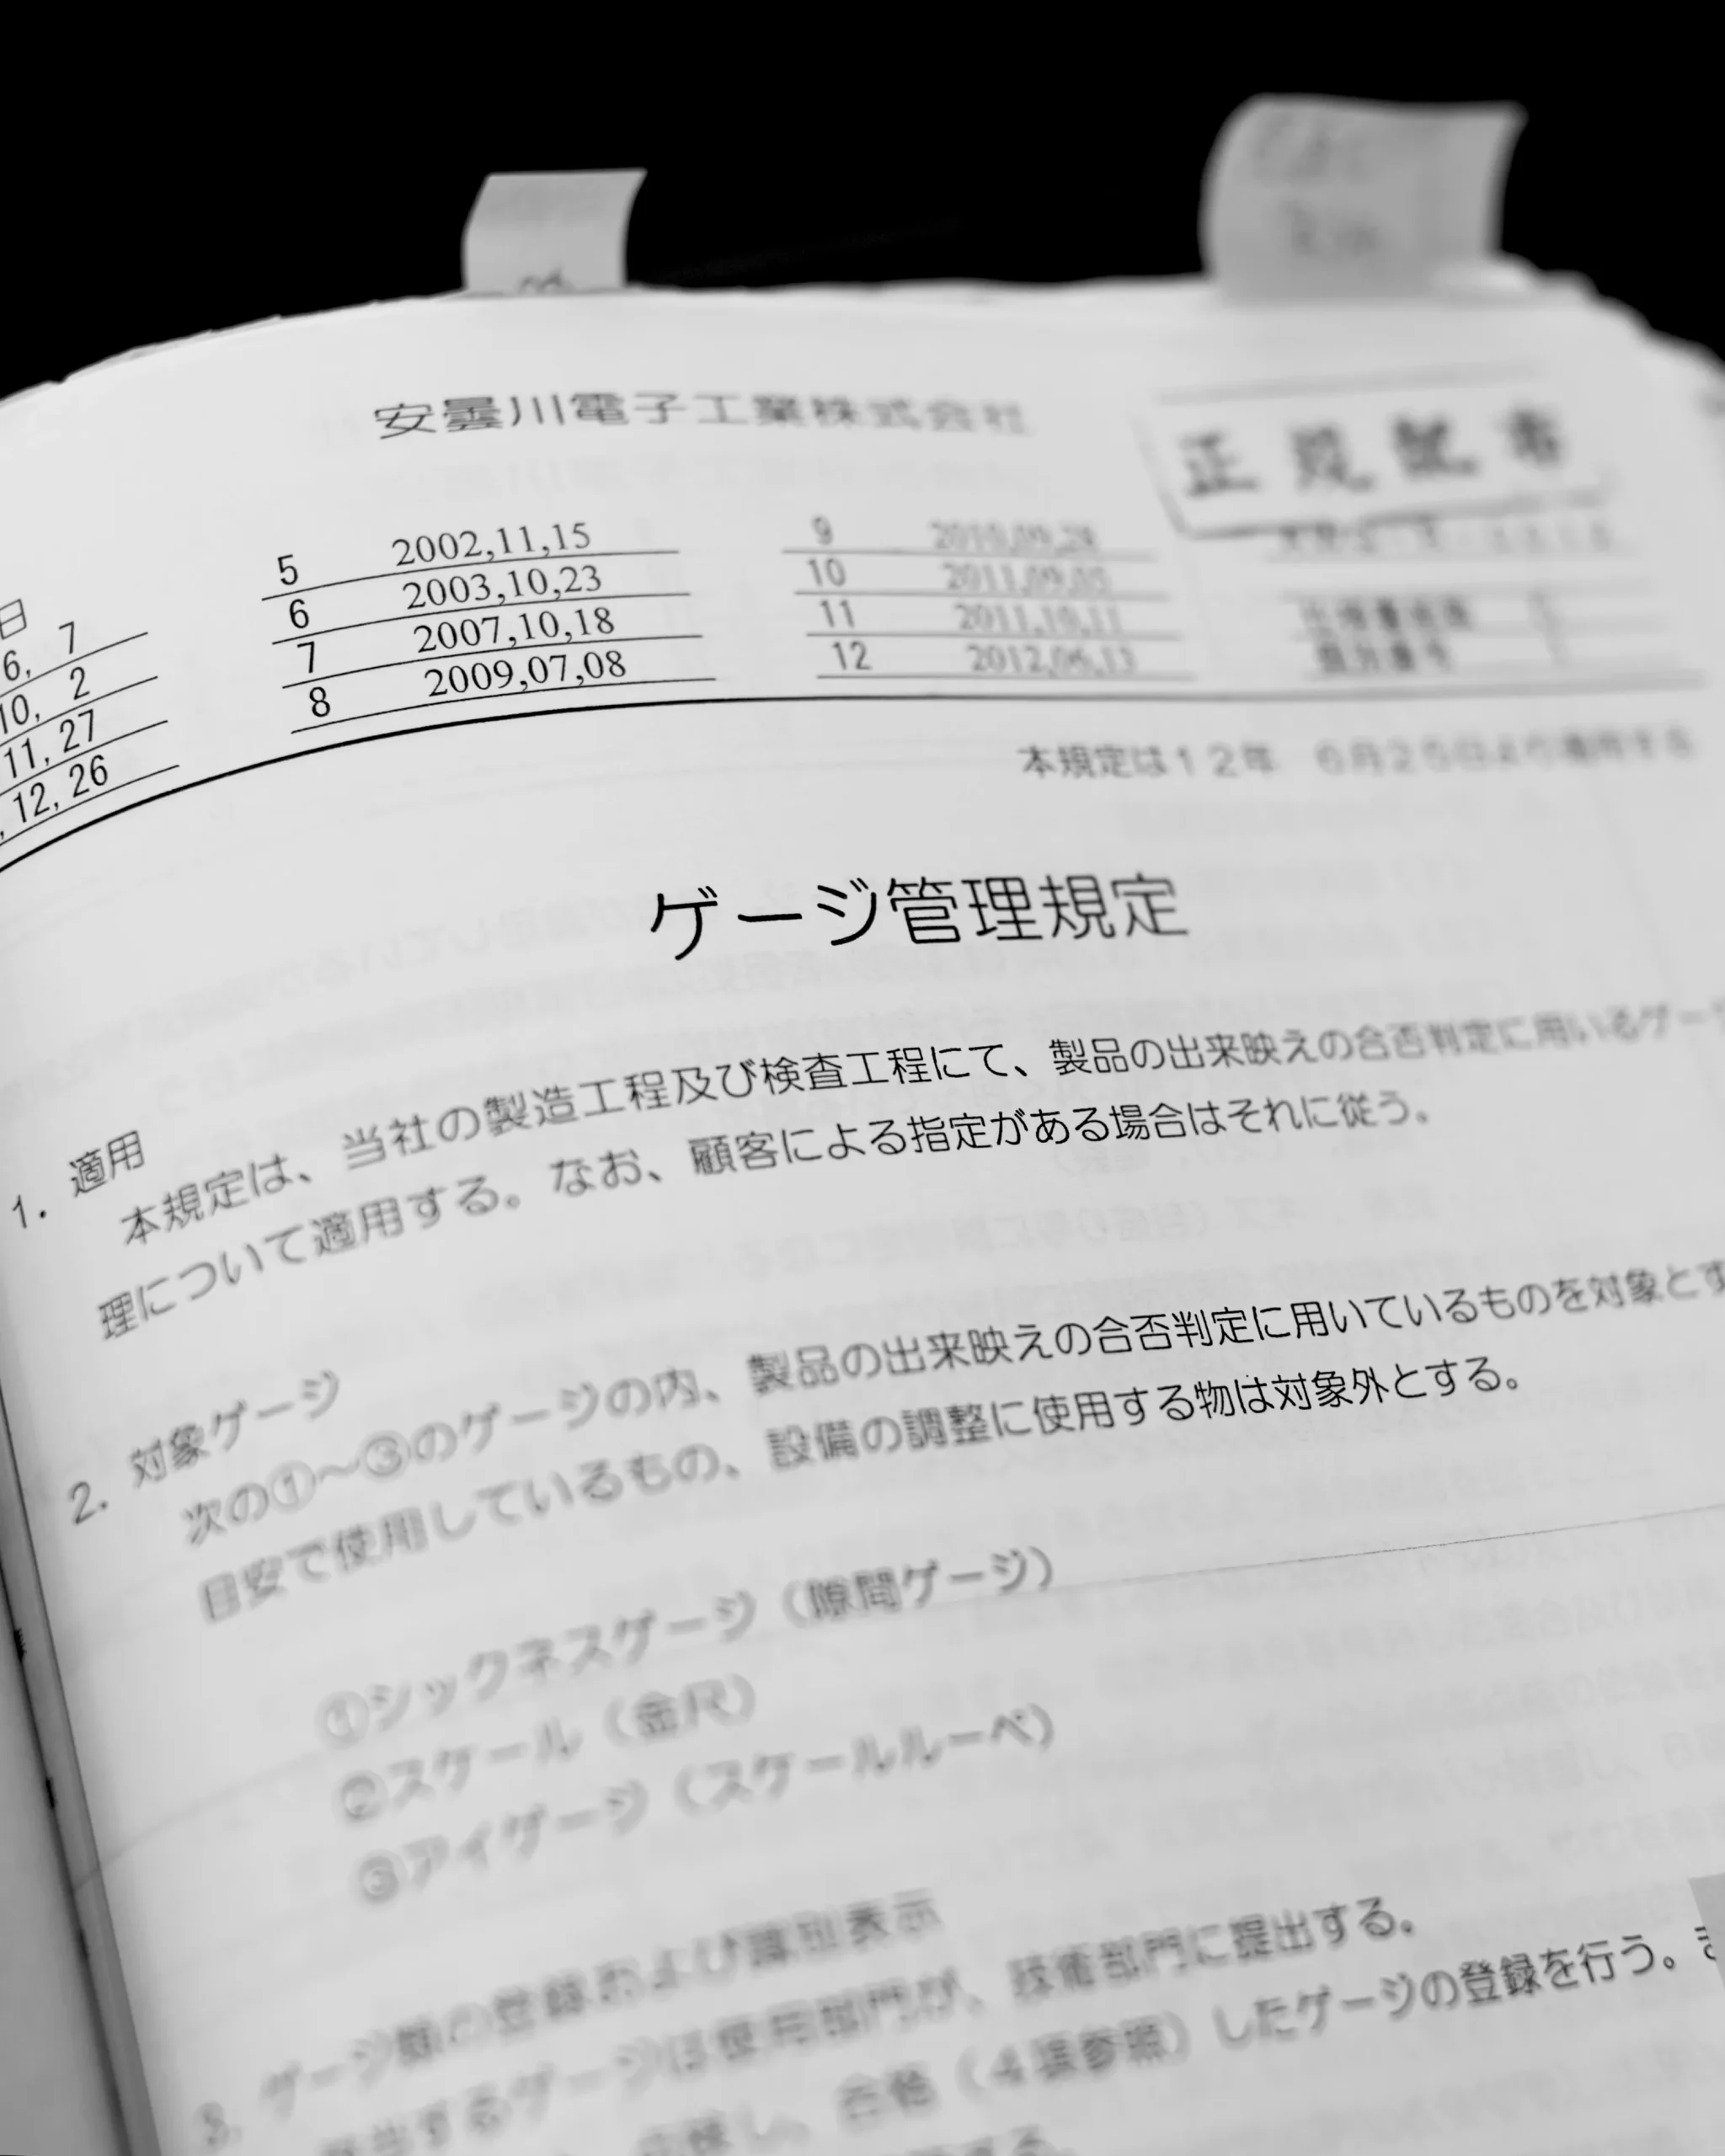 安曇川電子工業株式会社
正規配布
日
6, 7
10, 2
11, 27
, 12, 26
5 2002,11,15
6 2003,10,23
7 2007,10,18
8 2009,07,08
9 2010,09,28
10 2011,09,05
11 2011,10,11
12 2012,06,13
本規定は12年 6月25日より適用する
ゲージ管理規定
1. 適用
本規定は、当社の製造工程及び検査工程にて、製品の出来映えの合否判定に用いるゲー
理について適用する。なお、顧客による指定がある場合はそれに従う。
2. 対象ゲージ
次の①~③のゲージの内、製品の出来映えの合否判定に用いているものを対象とす
目安で使用しているもの、設備の調整に使用する物は対象外とする。
①シックネスゲージ(隙間ゲージ)
②スケール(金尺)
③アイゲージ(スケールルーペ)
3. ゲージ類の登録および識別表示
該当するゲージは使用部門が、技術部門に提出する。
合格(4項参照)したゲージの登録を行う。